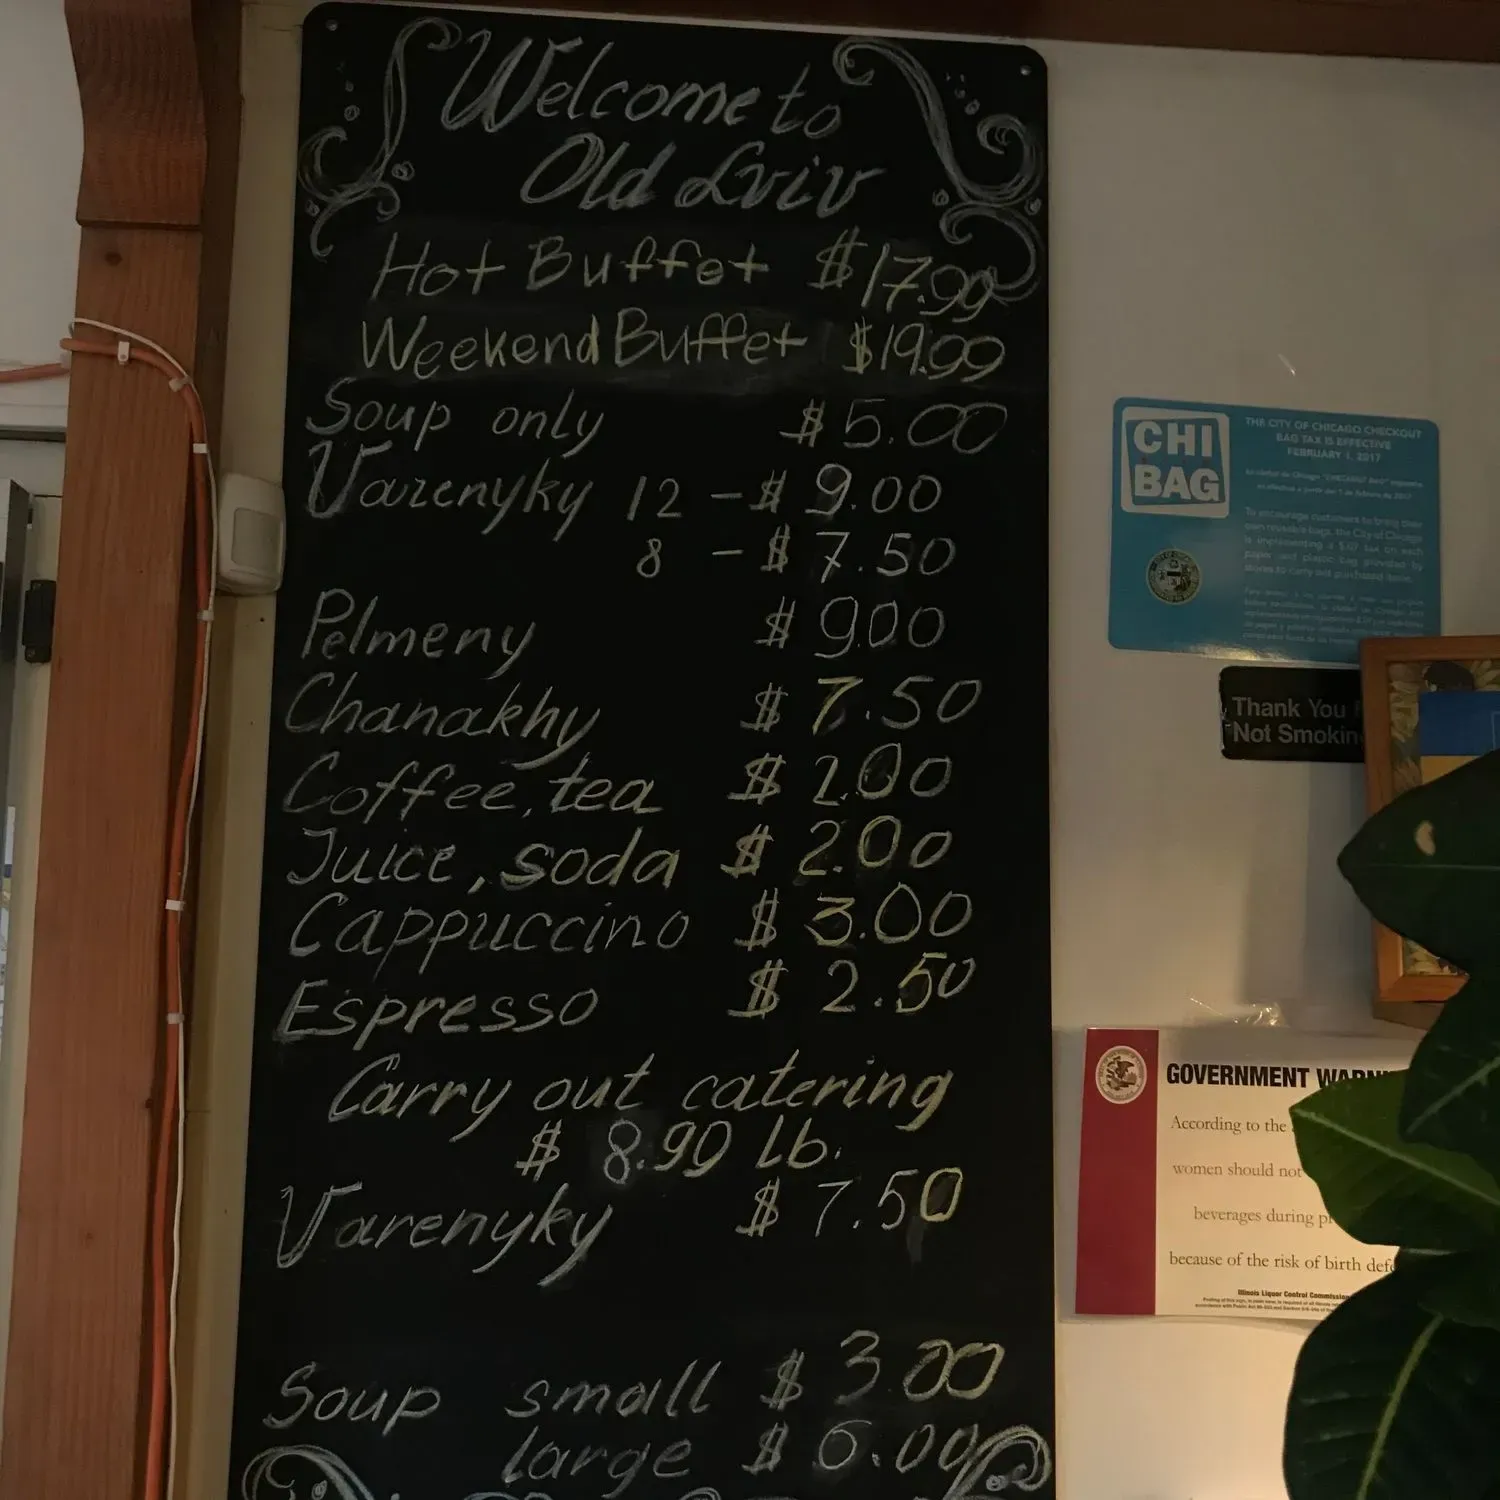 Welcome to
Old Lviv
Hot Buffet $17.99
Weekend Buffet $19.99
Soup only $5.00
Varenyky 12 - $ 9.00
8 - $ 7.50
Pelmeny $ 9.00
Chanakhy $ 7.50
Coffee, tea $ 2.00
Juice, soda $ 2.00
Cappuccino $ 3.00
Espresso $ 2.50
Carry out catering
$ 8.99 lb.
Varenyky $ 7.50
Soup small $ 3.00
large $ 6.00
CHI
BAG
THE CITY OF CHICAGO CHECKOUT
BAG TAX IS EFFECTIVE
FEBRUARY 1, 2017
To encourage customers to bring their
own reusable bags, the City of Chicago
is implementing a $.07 tax on each
paper and plastic bag provided by
stores to carry out purchased items.
Thank You
Not Smokin
GOVERNMENT WARN
According to the
women should not
beverages during pr
because of the risk of birth defe
Illinois Liquor Control Commission